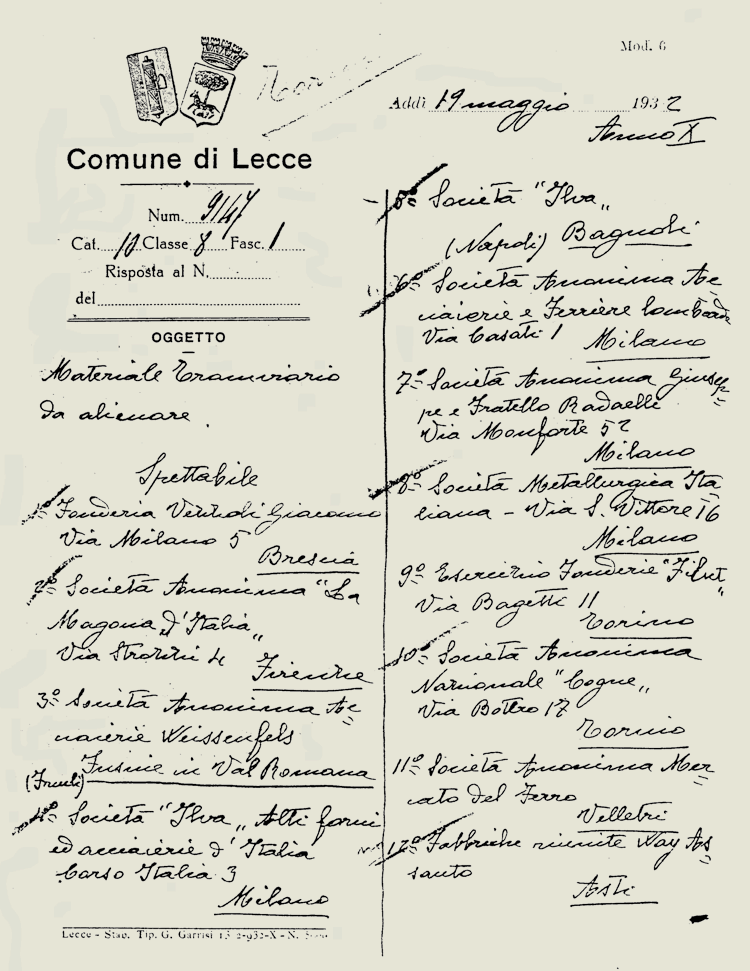 Mod. 6
Addì 19 maggio 1932
Anno X
Comune di Lecce
Num. 9147
Cat. 10 Classe 8 Fasc. 1
Risposta al N.
del
OGGETTO
Materiale Tramviario
da alienare.
Spettabile
1º Fonderia Giacomo
Via Milano 5
Brescia
2º Società Anonima "La
Magona d'Italia„
Via Strozzi 4
Firenze
3º Società Anonima Ac=
ciaierie Weissenfels
(Friuli) Fusine in Val Romana
4º Società "Ilva„ Alti forni
ed acciaierie d'Italia
Corso Italia 3
Milano
Lecce - Stab. Tip. G. Garrisi 13-2-932-X - N.
5º Società "Ilva„
(Napoli) Bagnoli
6º Società Anonima Ac=
ciaierie e Ferriere lombarde
Via Casati 1
Milano
7º Società Anonima Giusep=
pe e Fratello Radaelli
Via Monforte 52
Milano
8º Società Metallurgica Ita=
liana - Via S. Vittore 16
Milano
9º Esercizio Fonderie "Filut„
Via Bagetti 11
Torino
10º Società Anonima
Nazionale "Cogne„
Via Botero 17
Torino
11º Società Anonima Mer=
cato del Ferro
Velletri
12º Fabbriche riunite Way As=
sauto
Asti